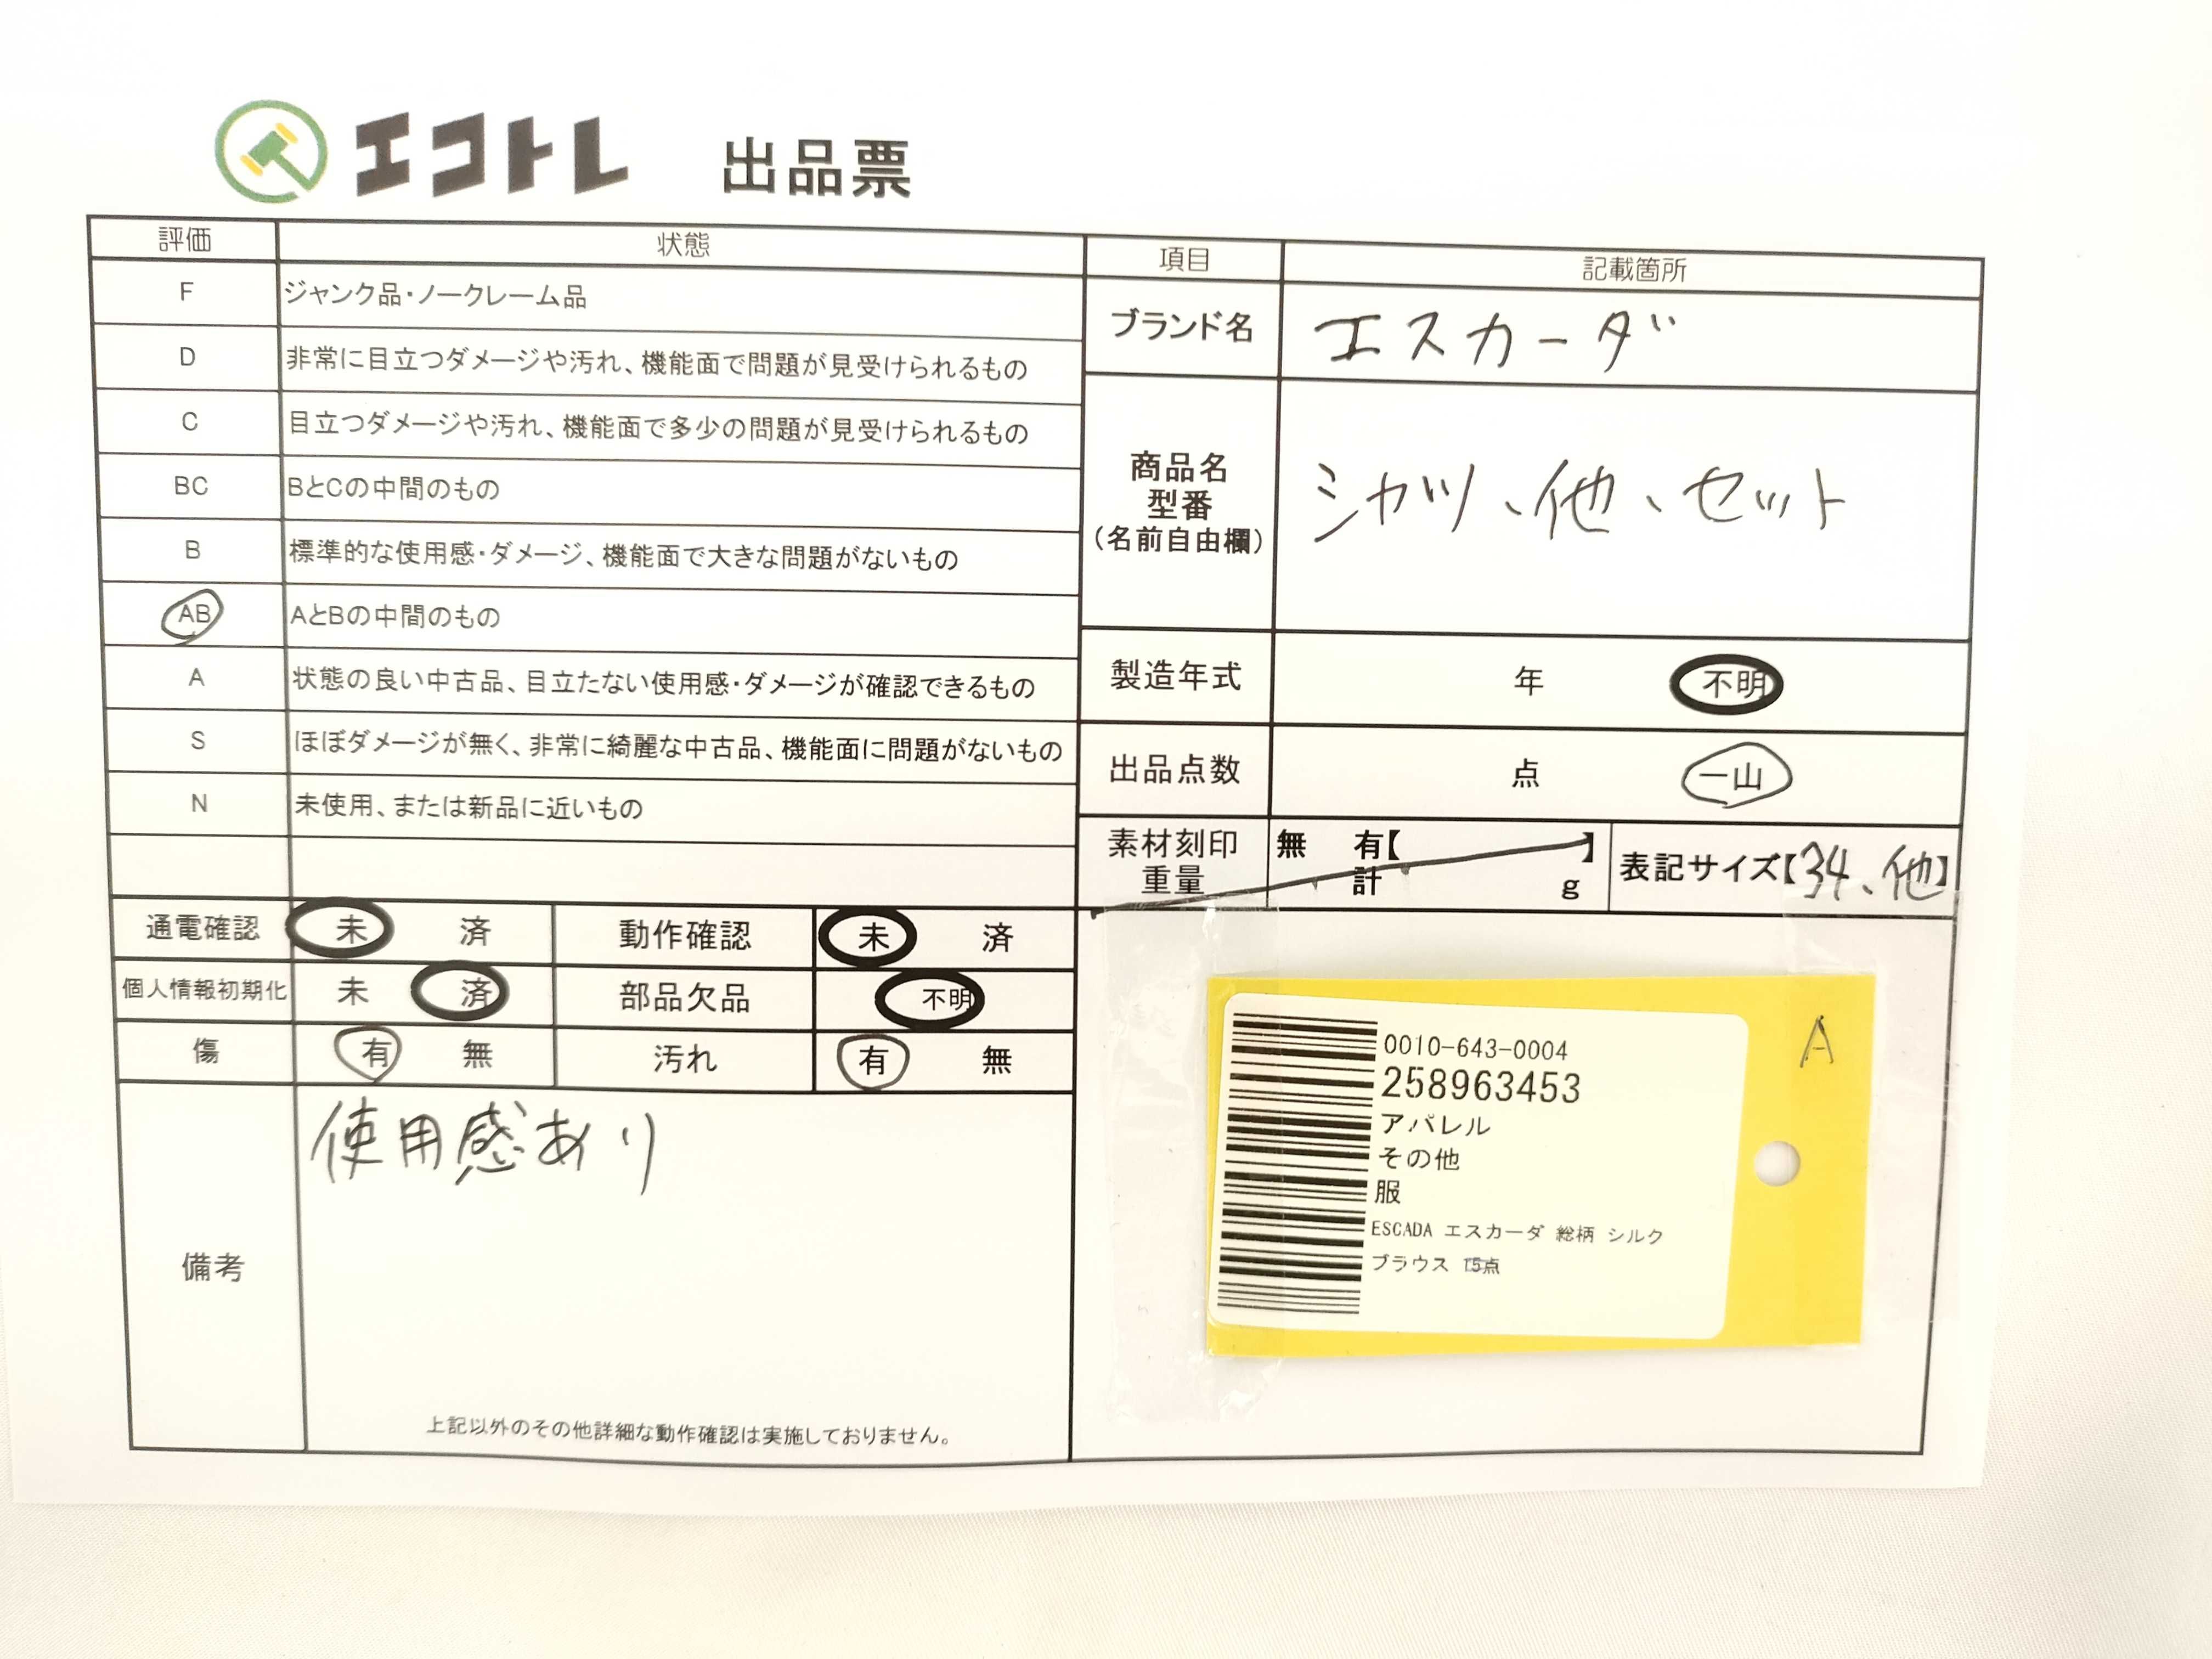 エコトレ 出品票
評価 状態
F ジャンク品・ノークレーム品
D 非常に目立つダメージや汚れ、機能面で問題が見受けられるもの
C 目立つダメージや汚れ、機能面で多少の問題が見受けられるもの
BC BとCの中間のもの
B 標準的な使用感・ダメージ、機能面で大きな問題がないもの
AB AとBの中間のもの
A 状態の良い中古品、目立たない使用感・ダメージが確認できるもの
S ほぼダメージが無く、非常に綺麗な中古品、機能面に問題がないもの
N 未使用、または新品に近いもの
通電確認 未 済 動作確認 未 済
個人情報初期化 未 済 部品欠品 不明
傷 有 無 汚れ 有 無
備考 使用感あり
上記以外のその他詳細な動作確認は実施しておりません。
項目 記載箇所
ブランド名 エスカーダ
商品名
型番
(名前自由欄)
シャツ、他、セット
製造年式 年 不明
出品点数 点 一山
素材刻印 無 有【 】
重量 計 g
表記サイズ【34、他】
A
0010-643-0004
258963453
アパレル
その他
服
ESCADA エスカーダ 総柄 シルク
ブラウス 15点